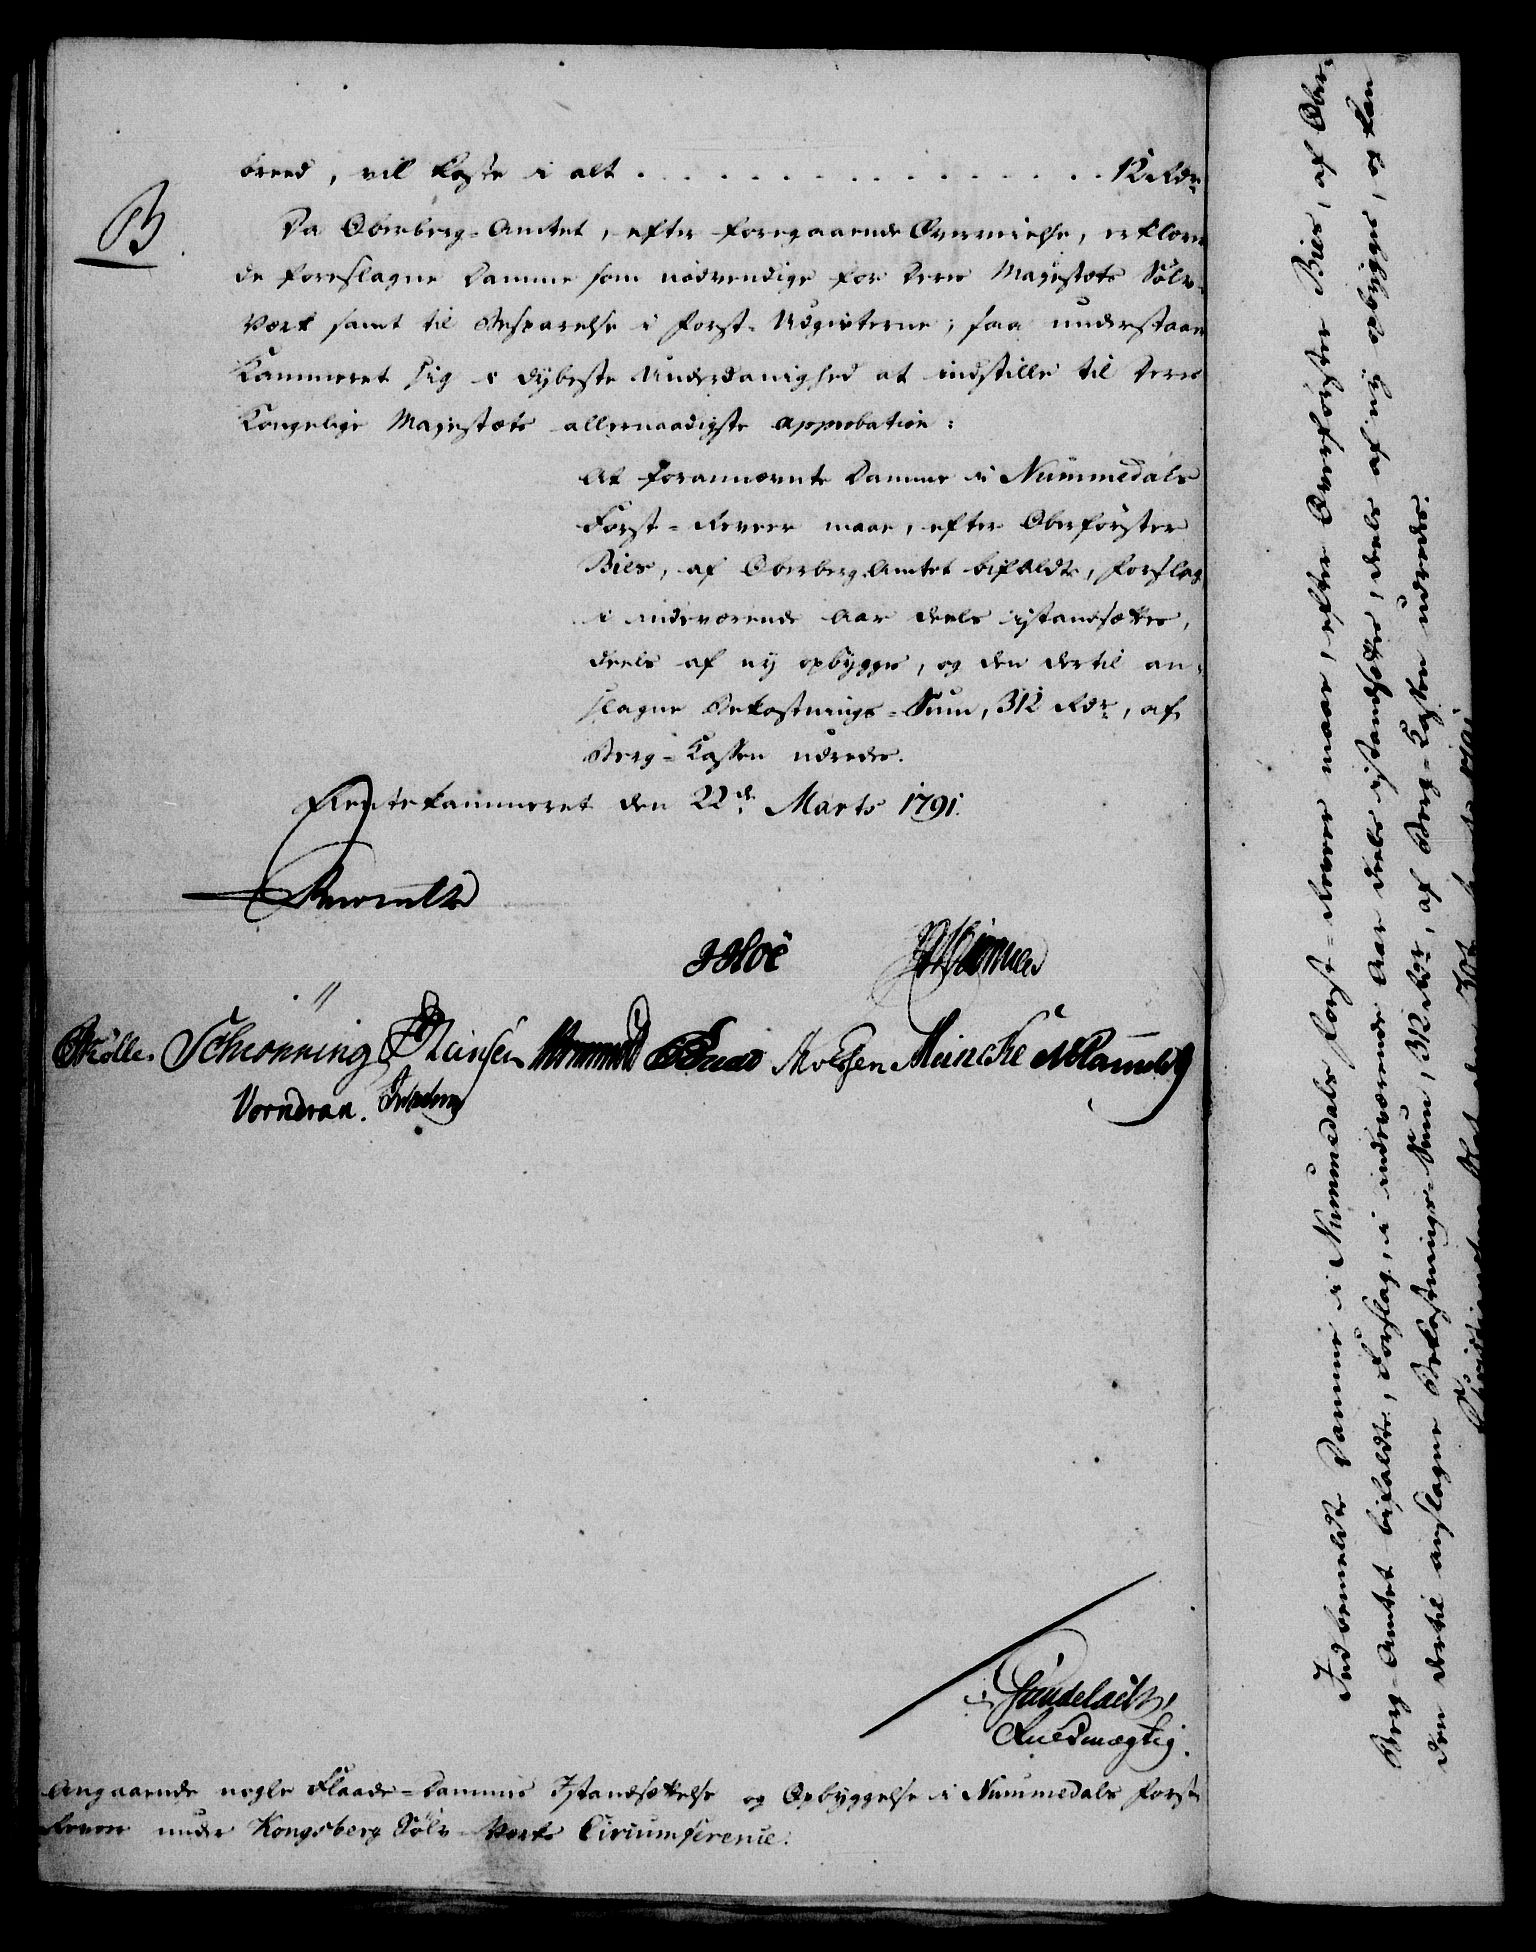 breed, vil koste i alt . . . . . . . . . . . . . . . . 12 Rdr
B.
Da Oberberg-Amtet, efter foregaaende Overveielse, erklærer
de foreslagne Damme som nødvendige for Deres Majestæts Sølv-
Værk samt til Besparelse i Forst-Udgivterne; saa understaaer
Kammeret sig i dybeste Underdanighed at indstille til Deres
Kongelige Majestæts allernaadigste approbation:
At forannævnte Damme i Nummedals
Forst-Reveer maae, efter Oberförster
Bies, af Oberberg-Amtet bifaldte, Forslag
i indeværende Aar deels istandsættes,
deels af ny opbygges, og den dertil an-
slagne Bekostnings-Sum, 312 Rdr, af
Berg-Kassen udredes.
Rentekammeret den 22de Marts 1791.
Hoë
Schiønning Hansen Meincke
Vorndran.
Fuldmægtig.
Angaaende nogle Flaade-Dammes Istandsættelse og Opbyggelse i Nummedals Forst-
Reveer under Kongsberg Sølv-Værks Circumference.
Indbemeldte Damme i Nummedals Forst-Reveer maae, efter Overførster Bies, af Ober-
Berg-Amtet bifaldte, Forslag, i indeværende Aar deels istandsættes, deels af ny opbygges, og kan
den dertil anslagne Bekostnings-Sum, 312 Rdr, af Berg-Kassen udredes.